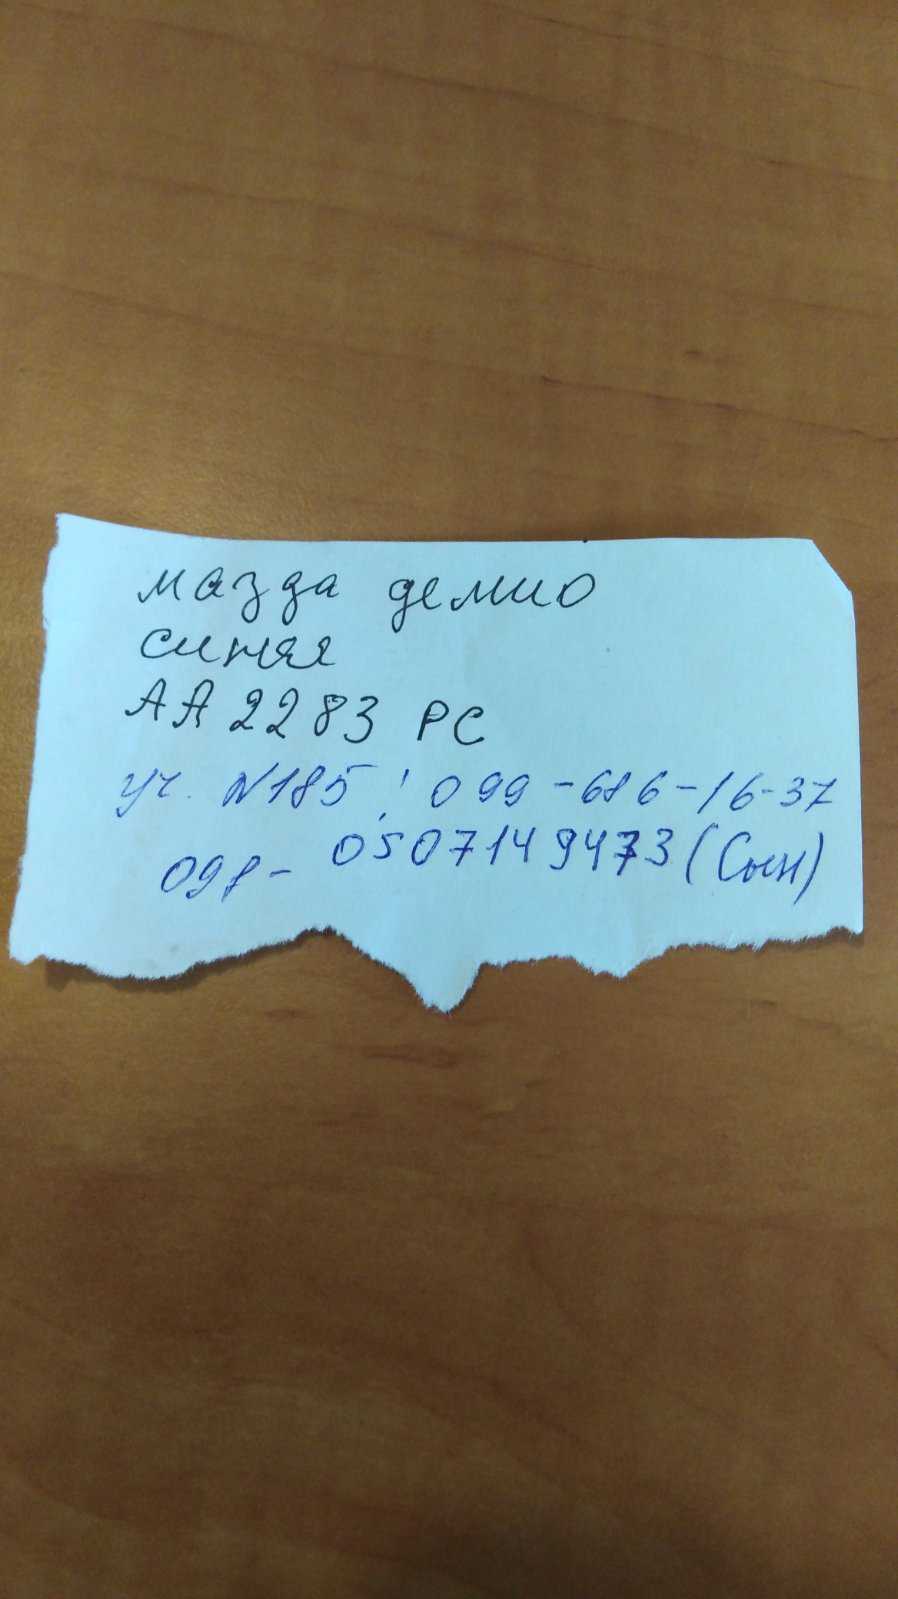 мазда демио
синяя
АА 2283 РС
уч. N185; 099-686-16-37
098- 0507149473 (Сын)